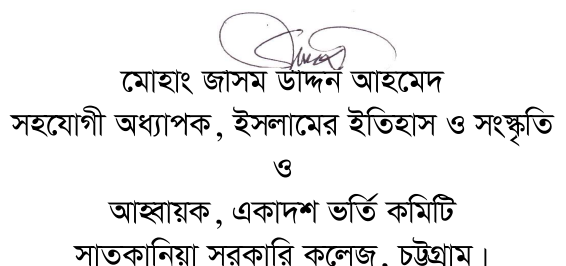 মোহাং জাসম উাদ্দন আহমেদ
সহযোগী অধ্যাপক, ইসলামের ইতিহাস ও সংস্কৃতি
ও
আহ্বায়ক, একাদশ ভর্তি কমিটি
সাতকানিয়া সরকারি কলেজ, চট্টগ্রাম।